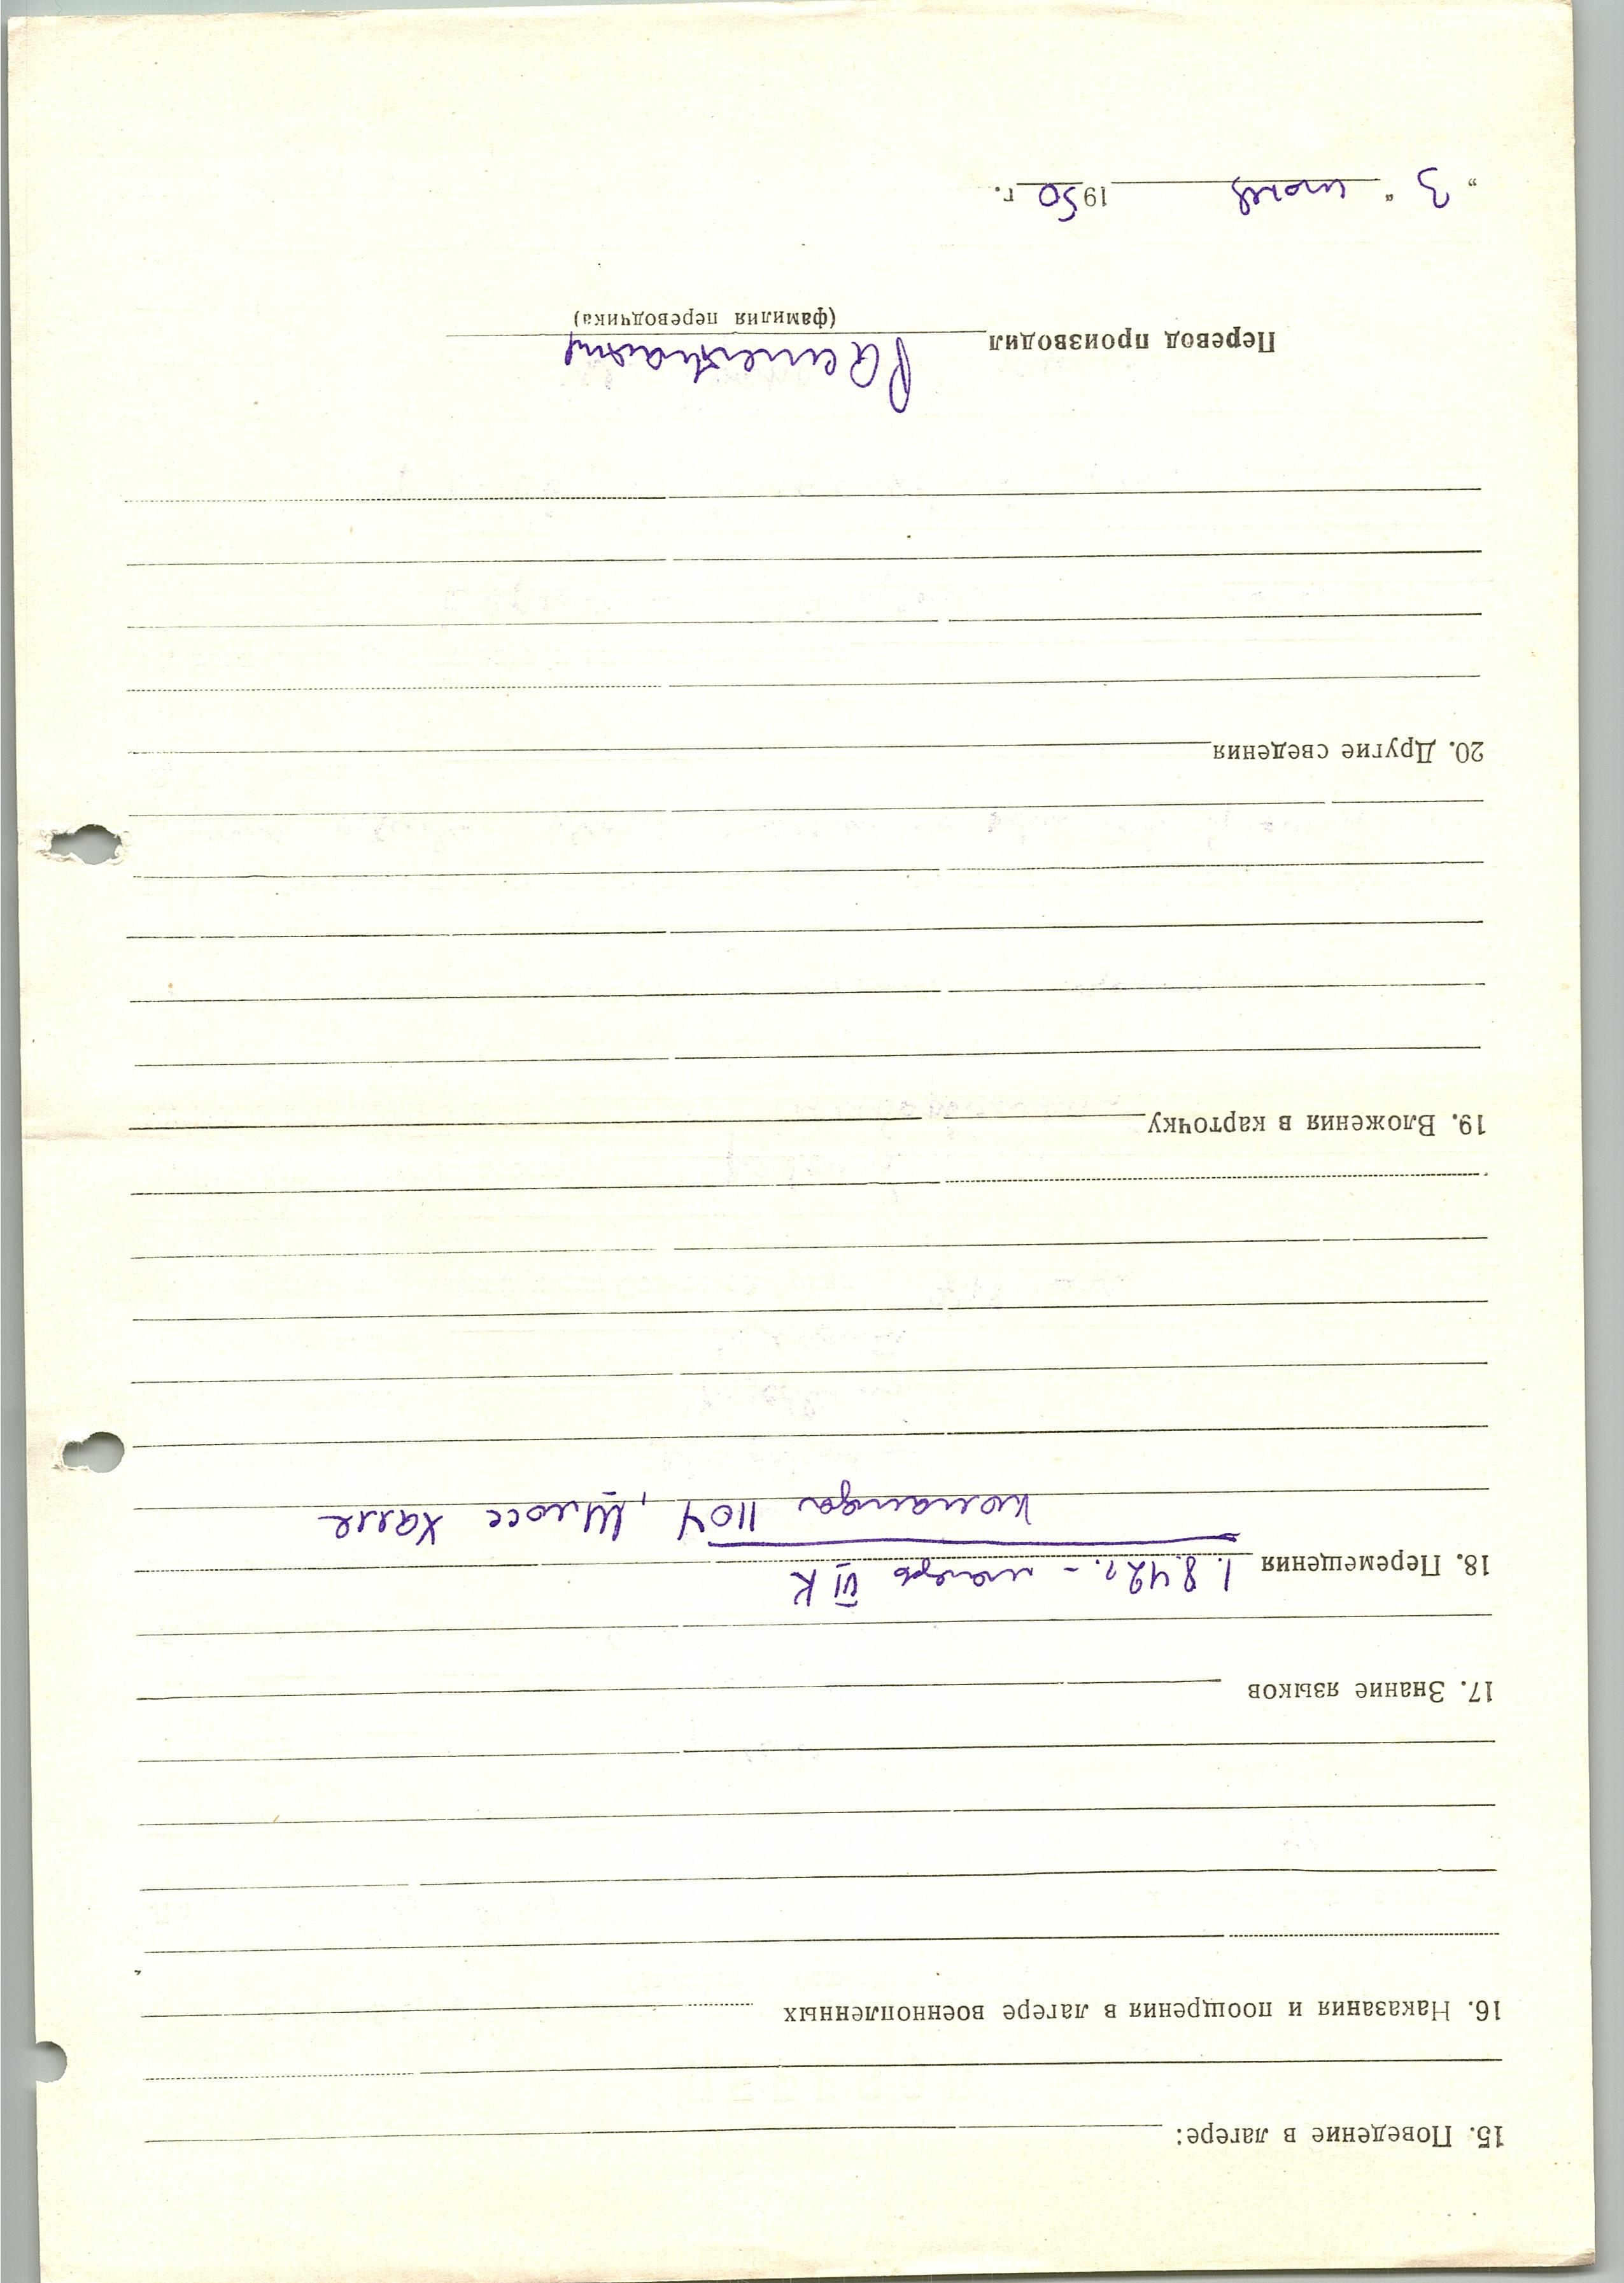 15. Поведение в лагере:
16. Наказания и поощрения в лагере военнопленных
17. Знание языков
18. Перемещения 1.8.42г. – лагерь VI К
команда 1104, Шлосс Халле
19. Вложения в карточку
20. Другие сведения
Перевод производил
(фамилия переводчика)
„ 3 “ 1950 г.